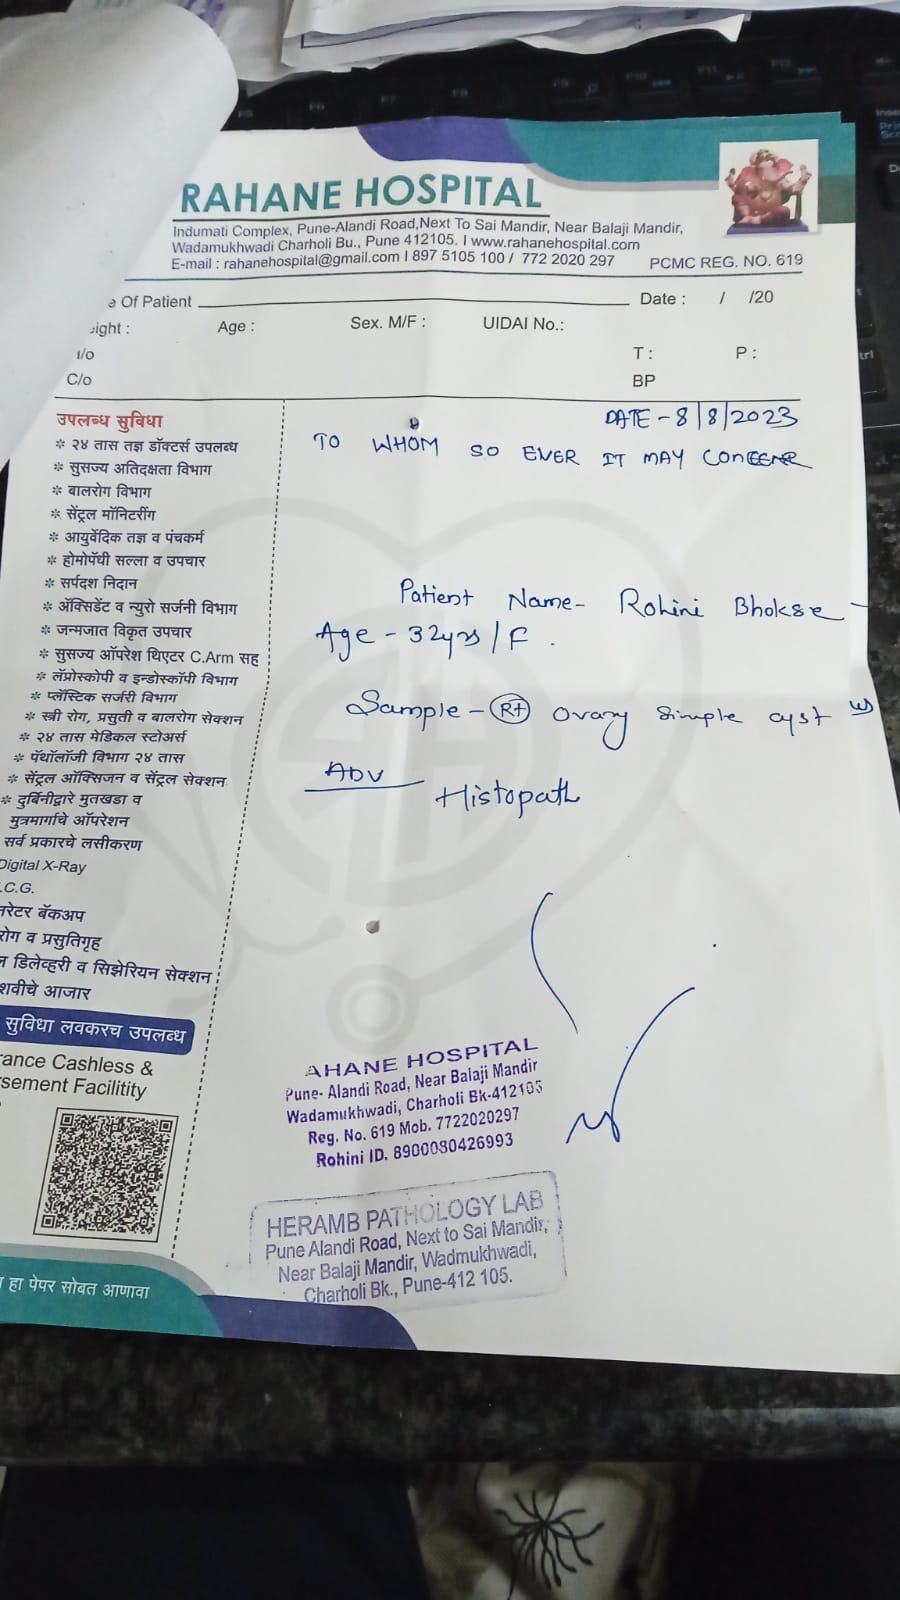 RAHANE HOSPITAL
Indumati Complex, Pune-Alandi Road,Next To Sai Mandir, Near Balaji Mandir,
Wadamukhwadi Charholi Bu., Pune 412105. I www.rahanehospital.com
E-mail : rahanehospital@gmail.com I 897 5105 100 / 772 2020 297 PCMC REG. NO. 619
e Of Patient Date : / /20
eight : Age : Sex. M/F : UIDAI No.:
/o T : P :
C/o BP
DATE - 8/8/2023
TO WHOM SO EVER IT MAY
Patient Name- Rohini Bhokse -
Age - 32yrs/F.
Sample - Rt ovary simple cyst
ADV
Histopath
उपलब्ध सुविधा
* २४ तास तज्ञ डॉक्टर्स उपलब्ध
* सुसज्य अतिदक्षता विभाग
* बालरोग विभाग
* सेंट्रल मॉनिटरींग
* आयुर्वेदिक तज्ञ व पंचकर्म
* होमोपॅथी सल्ला व उपचार
* सर्पदश निदान
* ॲक्सिडेंट व न्युरो सर्जनी विभाग
* जन्मजात विकृत उपचार
* सुसज्य ऑपरेश थिएटर C.Arm सह
* लॅप्रोस्कोपी व इन्डोस्कॉपी विभाग
* प्लॅस्टिक सर्जरी विभाग
* स्त्री रोग, प्रसुती व बालरोग सेक्शन
* २४ तास मेडिकल स्टोअर्स
* पॅथॉलॉजी विभाग २४ तास
* सेंट्रल ऑक्सिजन व सेंट्रल सेक्शन
* दुर्बिनीद्वारे मुतखडा व
मुत्रमार्गाचे ऑपरेशन
सर्व प्रकारचे लसीकरण
Digital X-Ray
.C.G.
नरेटर बॅकअप
रोग व प्रसुतिगृह
ल डिलेव्हरी व सिझेरियन सेक्शन
शवीचे आजार
सुविधा लवकरच उपलब्ध
rance Cashless &
sement Facilitity
हा पेपर सोबत आणावा
AHANE HOSPITAL
Pune- Alandi Road, Near Balaji Mandir
Wadamukhwadi, Charholi Bk-412105
Reg. No. 619 Mob. 7722020297
Rohini ID. 8900080426993
HERAMB PATHOLOGY LAB
Pune Alandi Road, Next to Sai Mandir,
Near Balaji Mandir, Wadmukhwadi,
Charholi Bk., Pune-412 105.